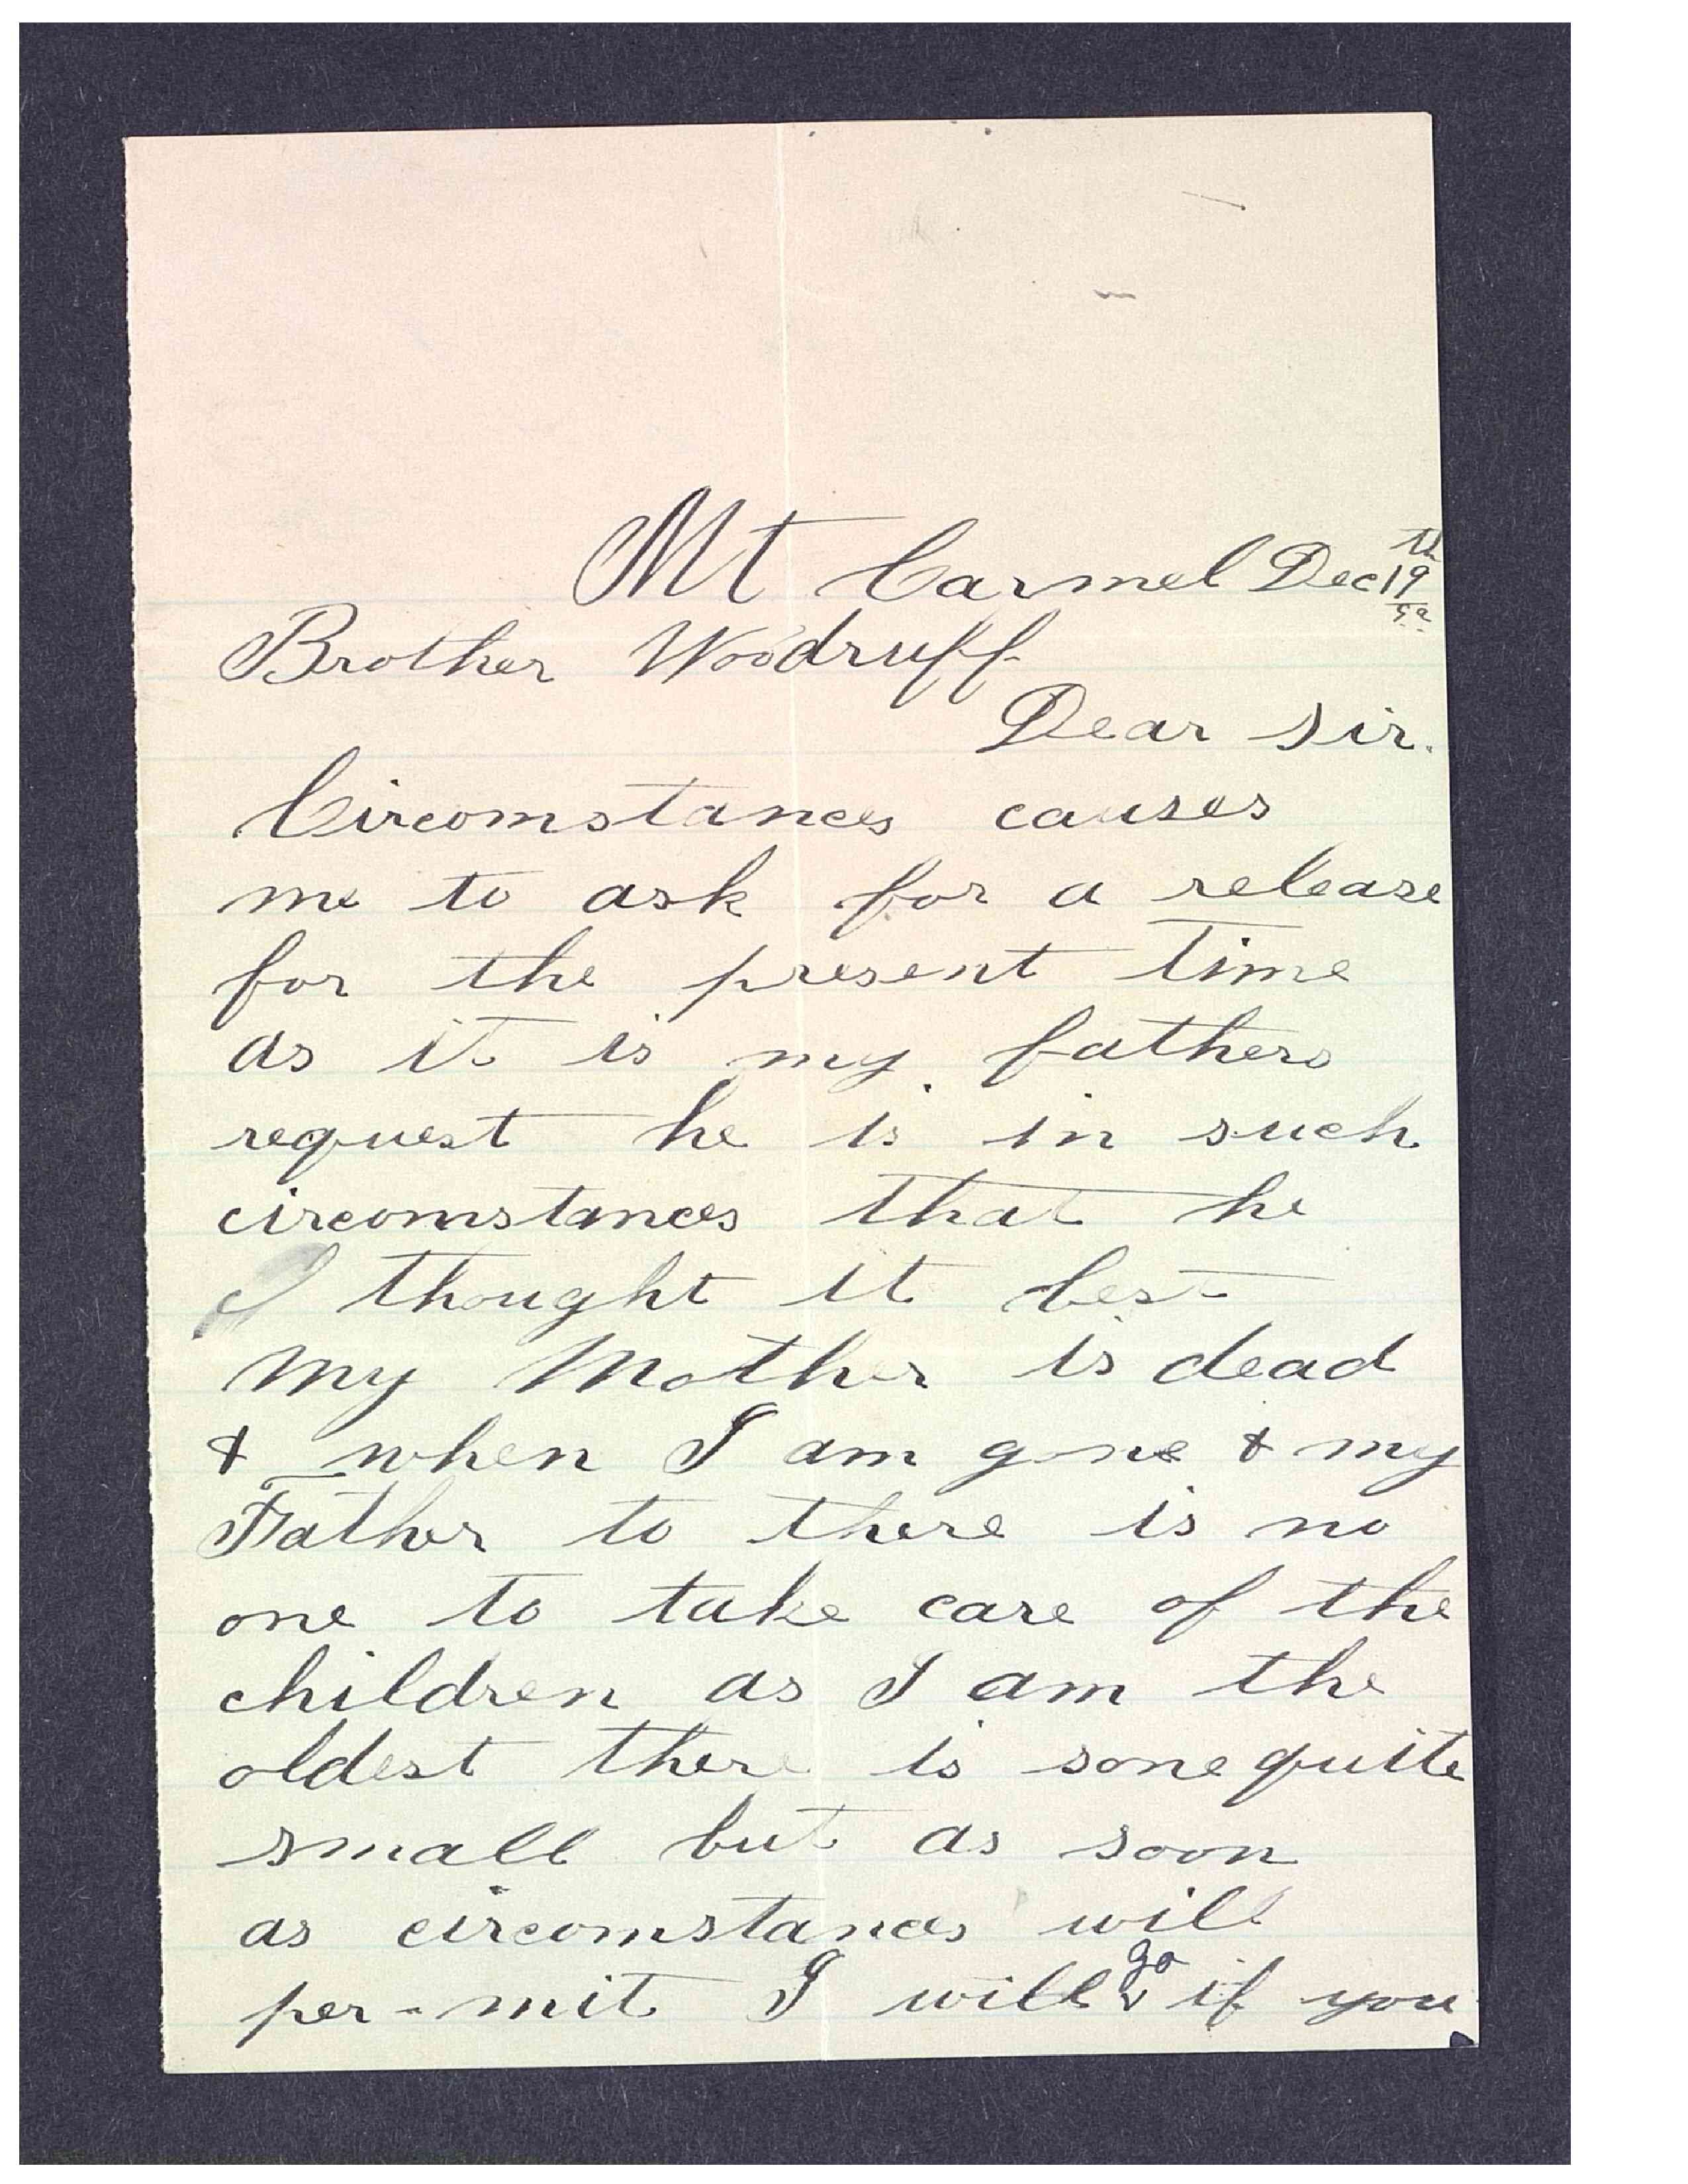 Mt Carmel Dec 19th
Brother Woodruff
Dear Sir.
Circomstances causes
me to ask for a release
for the present time
as it is my fathers
request he is in such
circomstances that he
I thought it best
my Mother is dead
& when I am gone & my
Father to there is no
one to take care of the
children as I am the
oldest there is some quite
small but as soon
as circomstances will
per-mit I will go if you